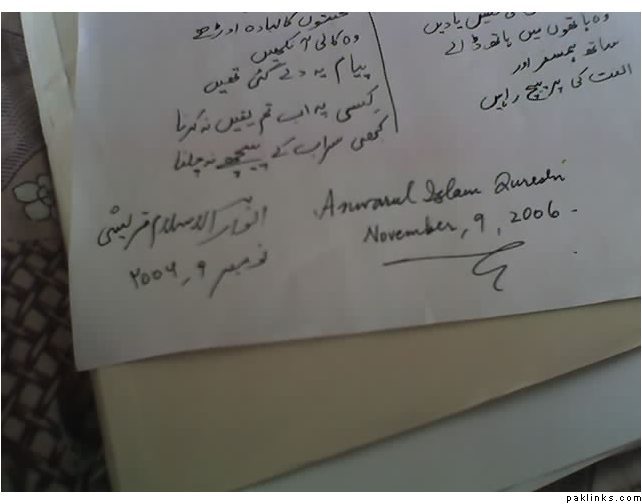 یادیں
وہ ہاتھوں میں ہاتھ ڈالے
ساتھ ہمسفر اور
الفت کی پرپیچ راہیں
کا لبادہ اوڑھے
وہ کالی آنکھیں
پیام یہ دے گئی تھیں
کسی پہ اب تم یقیں نہ کرنا
کبھی سراب کے پیچھے نہ چلنا
Anwarul Islam Qureshi
November, 9, 2006.
انوار الاسلام قریشی
نومبر ۹، ۲۰۰۶
paklinks.com